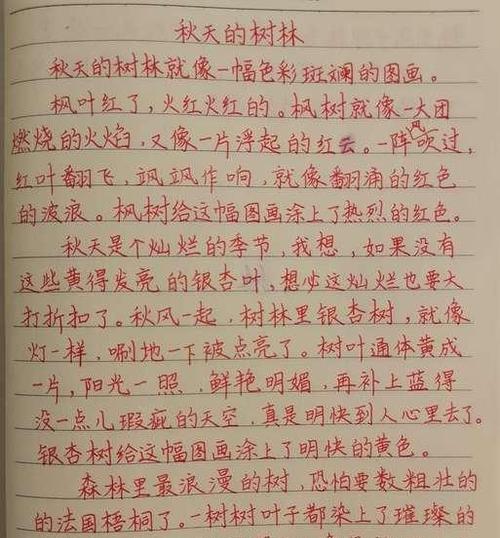 秋天的树林
秋天的树林就像一幅色彩斑斓的图画。
枫叶红了，火红火红的。枫树就像一大团
燃烧的火焰，又像一片浮起的红云。一阵风吹过，
红叶翻飞，飒飒作响，就像翻涌的红色
的波浪。枫树给这幅图画涂上了热烈的红色。
秋天是个灿烂的季节，我想，如果没有
这些黄得发亮的银杏叶，想必这灿烂也要大
打折扣了。秋风一起，树林里银杏树，就像
灯一样，唰地一下被点亮了。树叶通体黄成
一片，阳光一照，鲜艳明媚，再补上蓝得
没一点儿瑕疵的天空，真是明快到人心里去了。
银杏树给这幅图画涂上了明快的黄色。
森林里最浪漫的树，恐怕要数粗壮的
的法国梧桐了。一树树叶子都染上了璀璨的